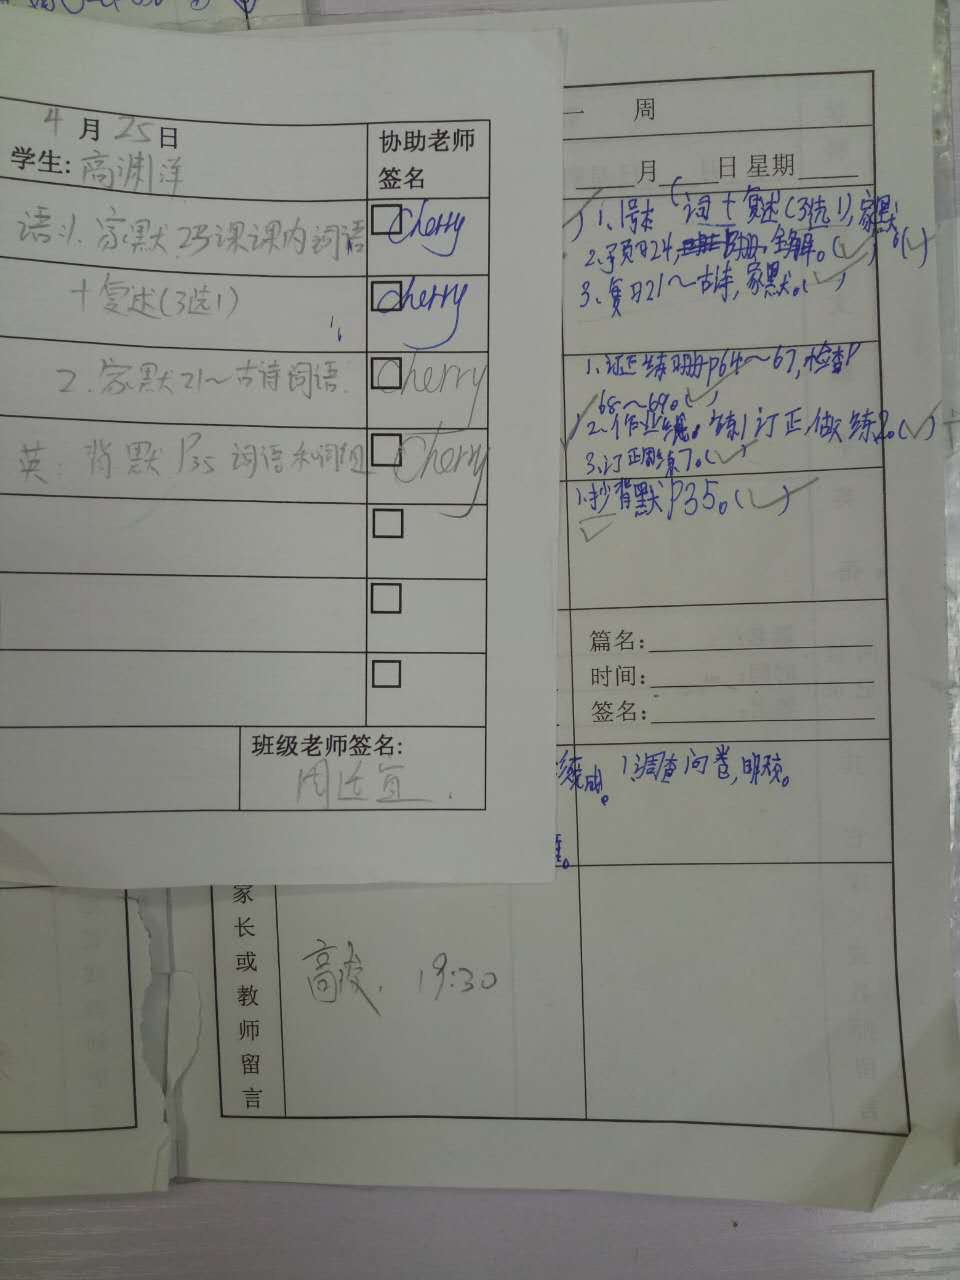 4月25日
学生:高渊洋
协助老师
签名
语:1.家默23课课内词语
Cherry
+复述(3选1)
Cherry
2.家默21~古诗词语.
Cherry
英:背默P35词语和词组
Cherry
班级老师签名:
一 周
月 日 星期
1、1号本(词+复述(3选1),家默。
2、预习24, 全解。(✓)
3、复习21~古诗,家默。(✓)
1、订正练习册P64~67,检查P
68~69。(✓)
2、作业纸。练1订正,做练2。(✓)
3、订正周练7。(✓)
1、抄背默P35。(✓)
篇名:
时间:
签名:
1、调查问卷,明交。
家长或教师留言
19:30